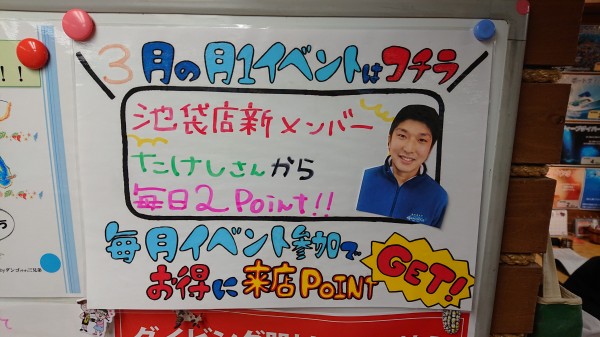 3月の月1イベントはコチラ
池袋店新メンバー
たけしさんから
毎日2Point!!
毎月イベント参加で
お得に来店POINT
GET!
!!